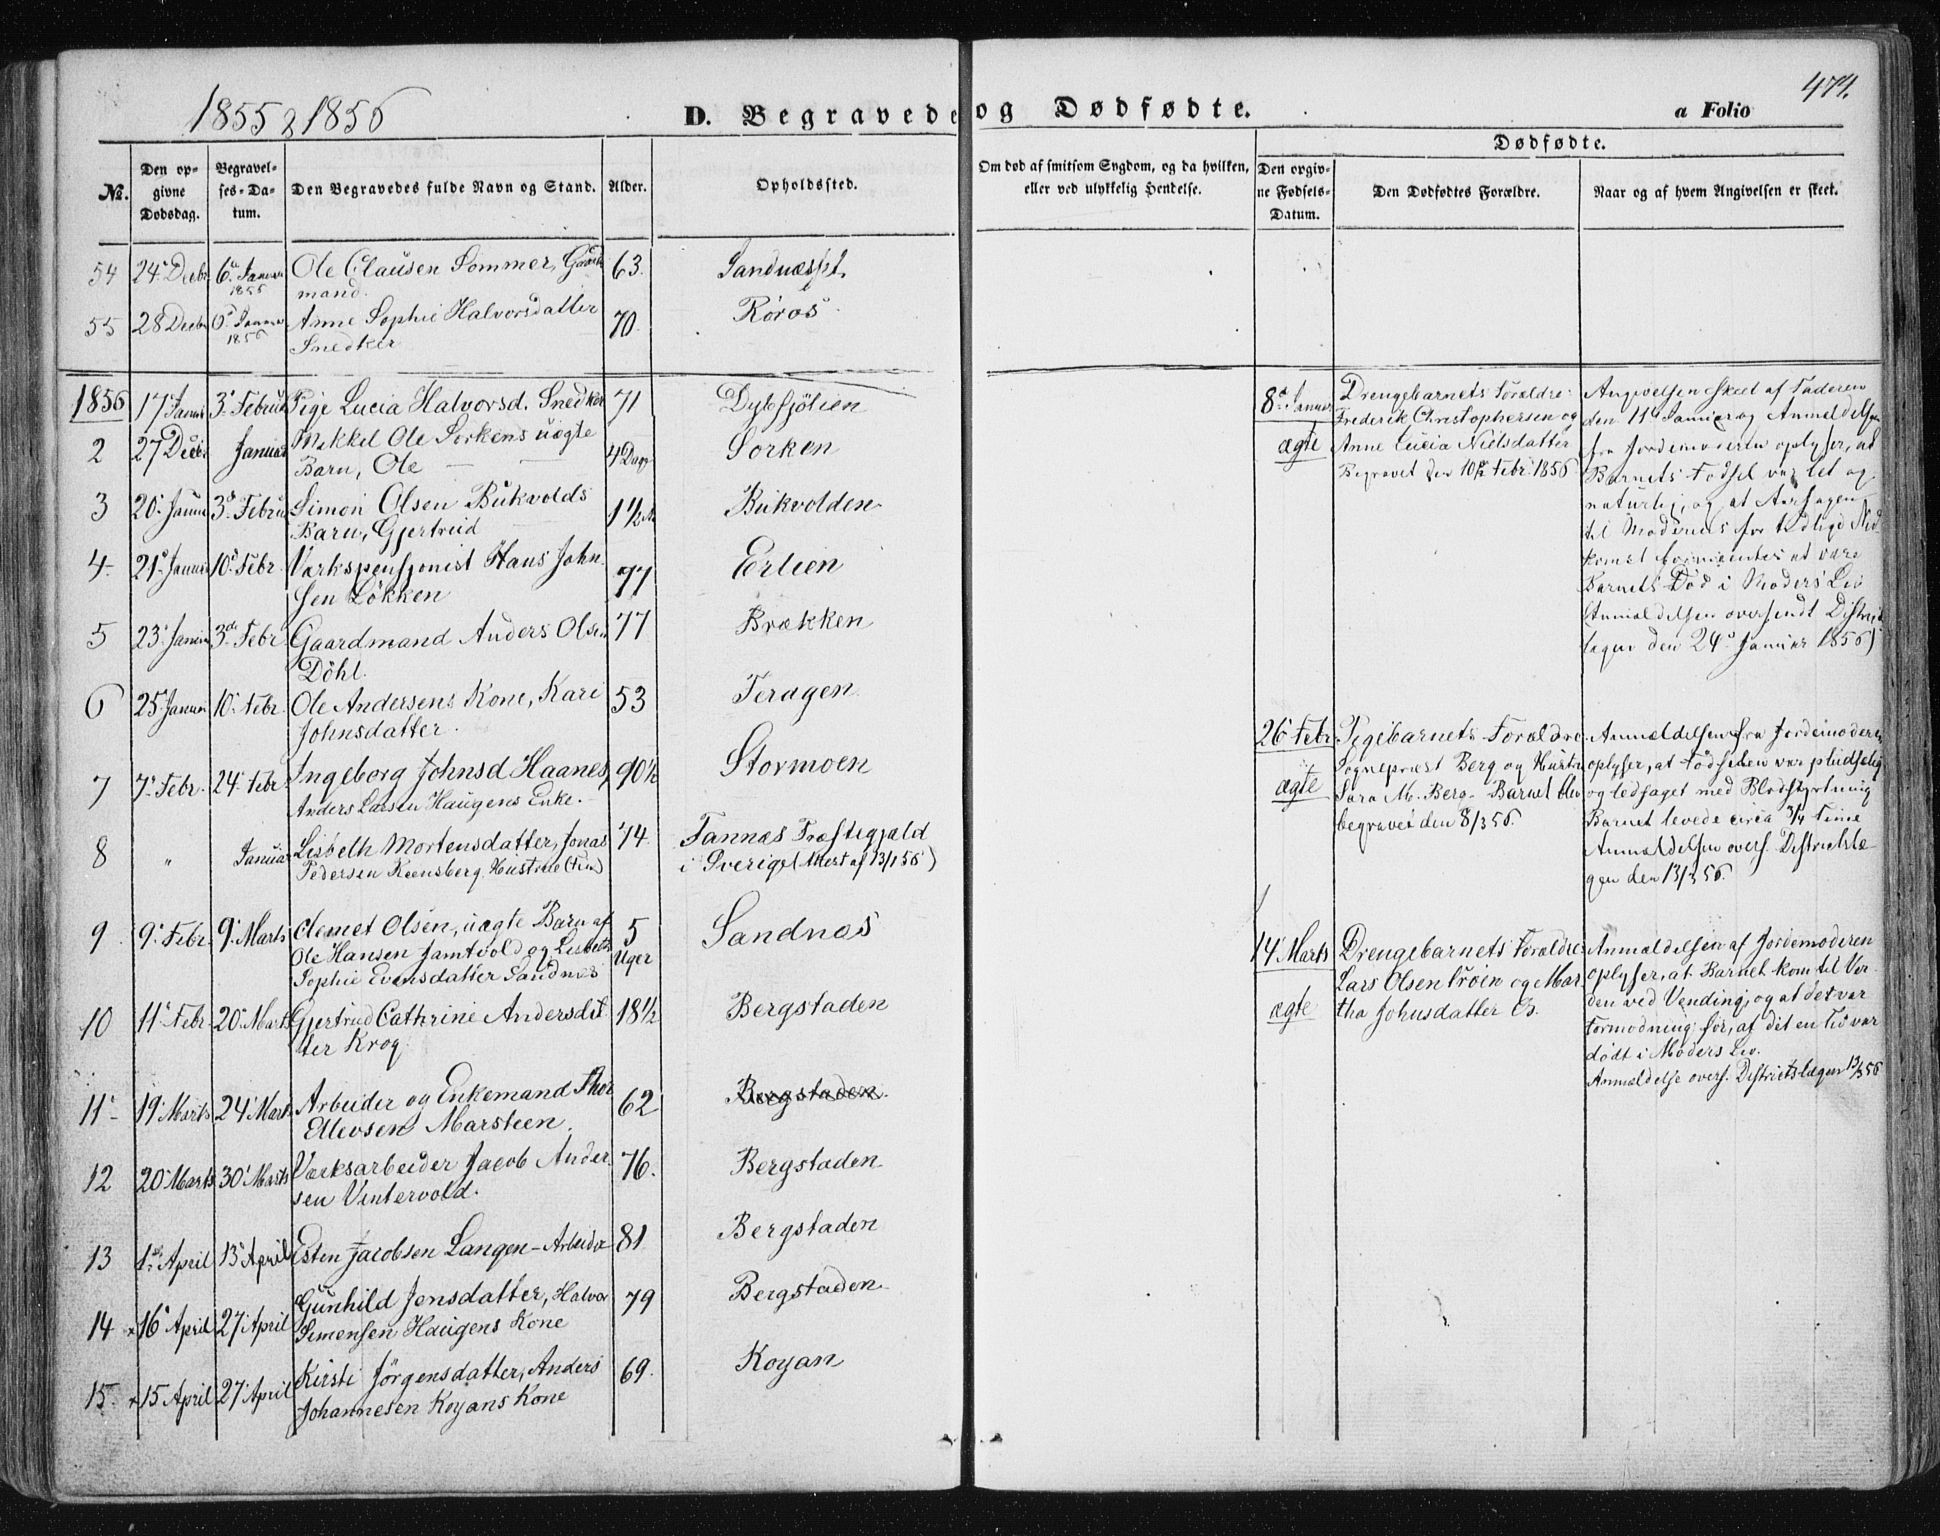 1855 & 1856
D. Begravede og Dødfødte.
a Folio
474.
№.
Den opgivne Dødsdag.
Begravelses-Datum.
Den Begravedes fulde Navn og Stand.
Alder.
Opholdssted.
Om død af smitsom Sygdom, og da hvilken,
eller ved ulykkelig Hendelse.
Dødfødte.
Den opgivne Fødsels-Datum.
Den Dødfødtes Forældre.
Naar og af hvem Angivelsen er skeet.
54 24 Decbr 6 Januar 1856 Ole Clausen Sommer, Gaard 63. Sandnæsset
mand.
55 28 Decbr 6 Januar 1856 Anne Sophie Halvorsdatter 70. Røros
Snedker
1856 17 Januar 3 Februar Pige Lucia Halvorsd. Snedker 71 Dybsjölien
2 27 Decbr Januar Mikkel Ole Sorkens uægte 4 Dage Sorken
Barn, Ole
3 20 Januar 3 Februar Simon Olsen Bukvolds 1½ Bukvolden
Barn, Gjertrud
4. 21 Januar 10 Febr. Værkspensjonist Hans John 77 Erlien
sen Løkken
5 23 Januar 3de Febr Gaardmand Anders Olsen 77 Brækken
Döhl.
6 25 Januar 10 Febr. Ole Andersens Kone, Kari 53 Feragen
Johnsdatter.
7 7 Febr. 24 Febr. Ingeborg Johnsd Haanes, 90½ Stormoen
Anders Larsen Haugens Enke.
8 " Januar Lisbeth Mortensdatter, Jonas 74 Tannæs Præstegjæld
Pedersen Rensberg. Hustrue (Fin) i Sverige (Attest af 13/1 56)
9. 9 Febr. 9 Marts Klemet Olsen, uægte Barn af 5 Uger Sandnæs
Ole Hansen Jamtvold og Lisbeth
Sophie Evensdatter Sandnæs
10 11 Febr. 20 Marts Gjertrud Cathrine Andersdat 18½ Bergstaden
ter Krog.
11 19 Marts 24 Marts Arbeider og Enkemand Thor 62 Bergstaden
Ellevsen Marsteen.
12 20 Marts 30 Marts Værksarbeider Jacob Ander 76. Bergstaden
sen Vintervold.
13 1ste April 13 April Esten Jacobsen Langen - Arbeider 81 Bergstaden
14 16 April 27 April Gunhild Jensdatter, Halvor 79 Bergstaden
Simensen Haugens Kone
15. 15 April 27 April Kirsti Jörgensdatter, Anders 69. Koyan
Johannesen Koyans Kone
8 Januar
ægte
Drengebarnets Forældre:
Frederik Christophersen og
Anne Lucia Nielsdatter
Begravet den 10de Febr. 1856
Angivelsen skeet af Faderen
den 11 Januar og Anmeldelsen
fra Jordemoderen oplyser, at
Barnets Fødsel var let og
naturlig, og at Aarsagen
til Moderens for tidlige Ned-
komst formeentes at være
Barnets Død i Moders Liv
(Anmeldelsen oversendt Districts
lægen den 24 Januar 1856)
26 Febr.
ægte
Pigebarnets Forældre
Sognepræst Berg og Hustru
Sara M. Berg. Barnet blev
begravet den 8/3 56.
Anmeldelsen fra Jordemoderen
oplyser, at Fødselen var pludselig
og ledsaget med Blodstyrtning
Barnet levede circa ¾ Time
Anmeldelsen overs. Districtslæ-
gen den 13/3 56.
14 Marts
ægte
Drengebarnets Forældre
Lars Olsen og Mar
tha Johnsdatter
Anmeldelsen af Jordemoderen
oplyser, at Barnet kom til Ver-
den ved Vending, og at det var
Formodning for, at det en Tid var
dødt i Moders Liv.
Anmeldelse overs. Districtslægen